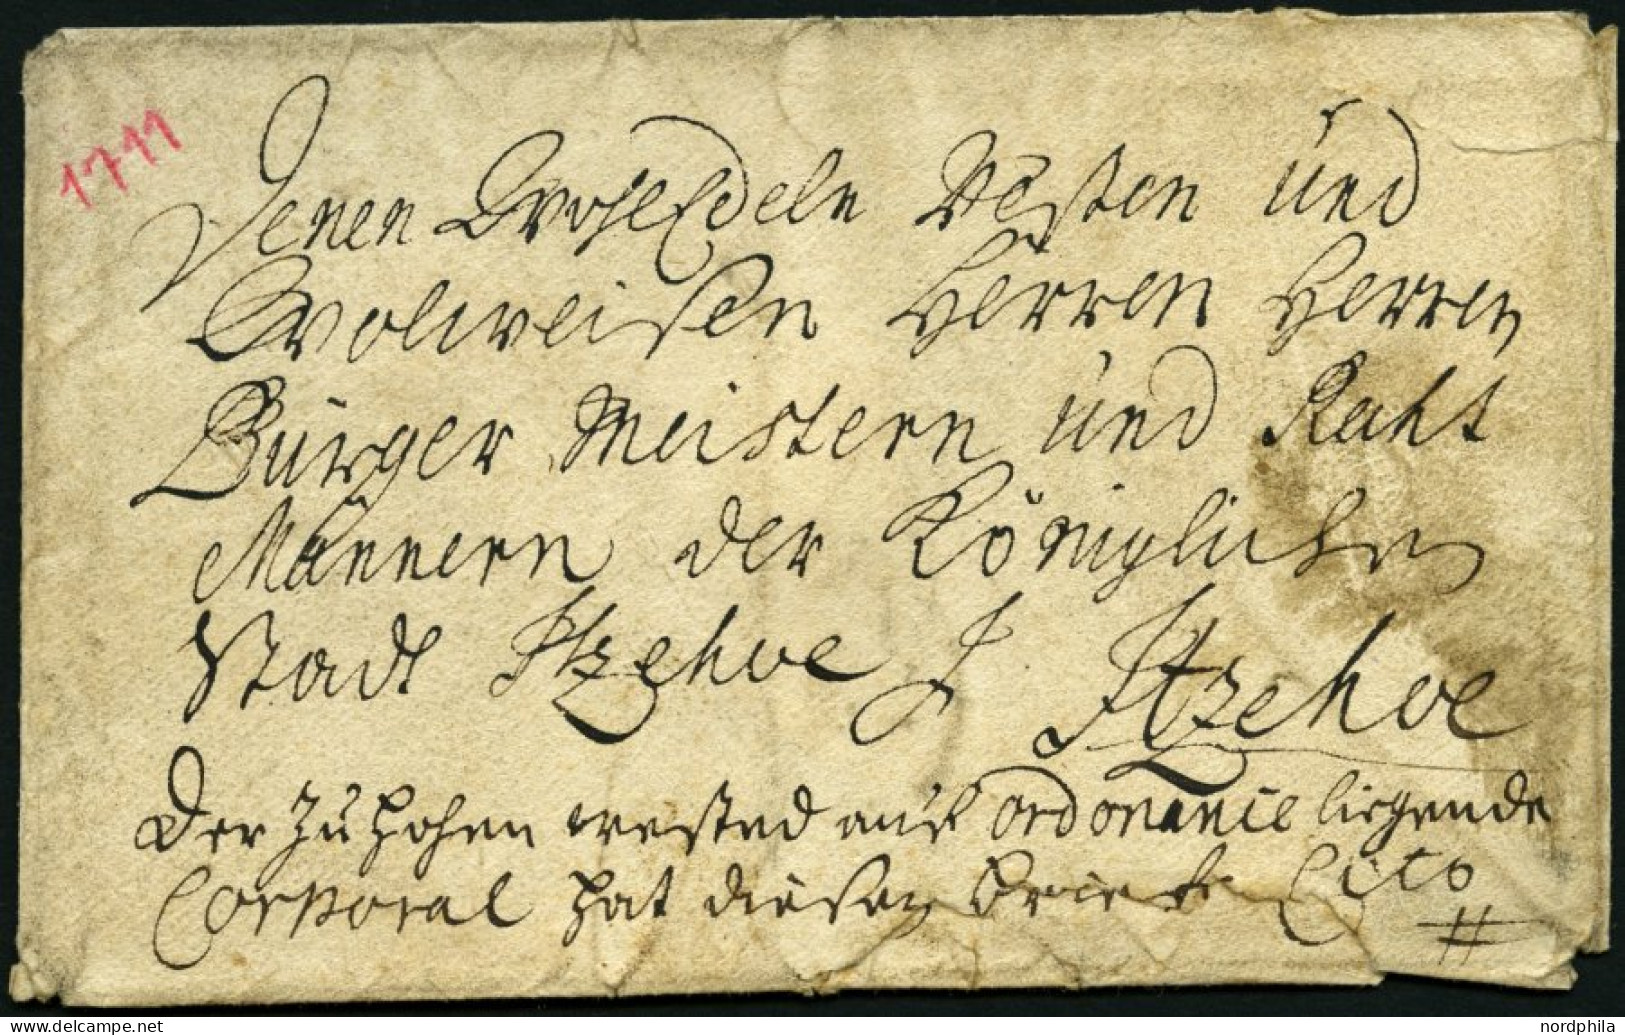 1711
Denen WohlEdeln Vesten und
Wolweisen Herren Herren
Bürger Meistern und Raht
Männern der Königlichen
Stadt Itzehoe
Itzehoe
Der zu Hohen wested auf ordonance liegende
Corporal hat diesen brief Cito
nordphila